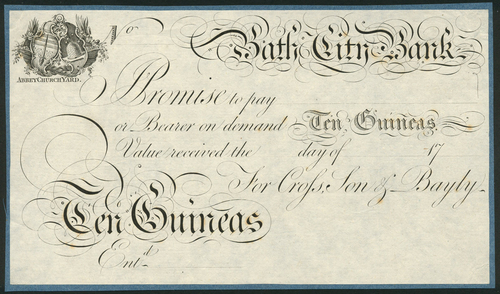 No
Bath City Bank
ABBEY CHURCH YARD.
Promise to pay
or Bearer on demand Ten Guineas
Value received the day of 17
For Croſs, Son & Bayly
Ten Guineas
Entd.